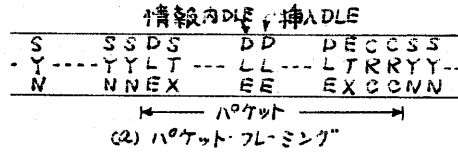 情報内DLE 挿入DLE
S S S D S D D D E C C S S
- Y ---- Y Y L T --- L L --- L T R R Y Y --
N N N E X E E E X C C N N
パケット
(a) パケット・フレーミング